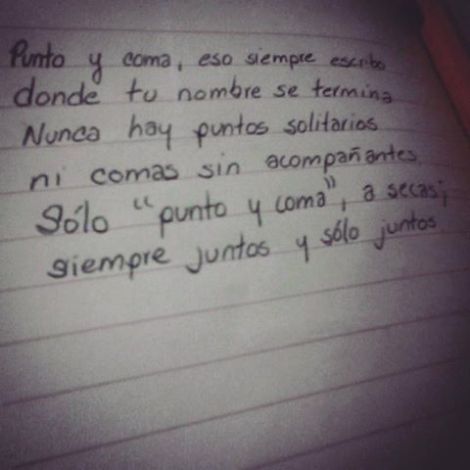 Punto y coma, eso siempre escribo
donde tu nombre se termina
Nunca hay puntos solitarios
ni comas sin acompañantes
Sólo "punto y coma", a secas;
siempre juntos y sólo juntos.